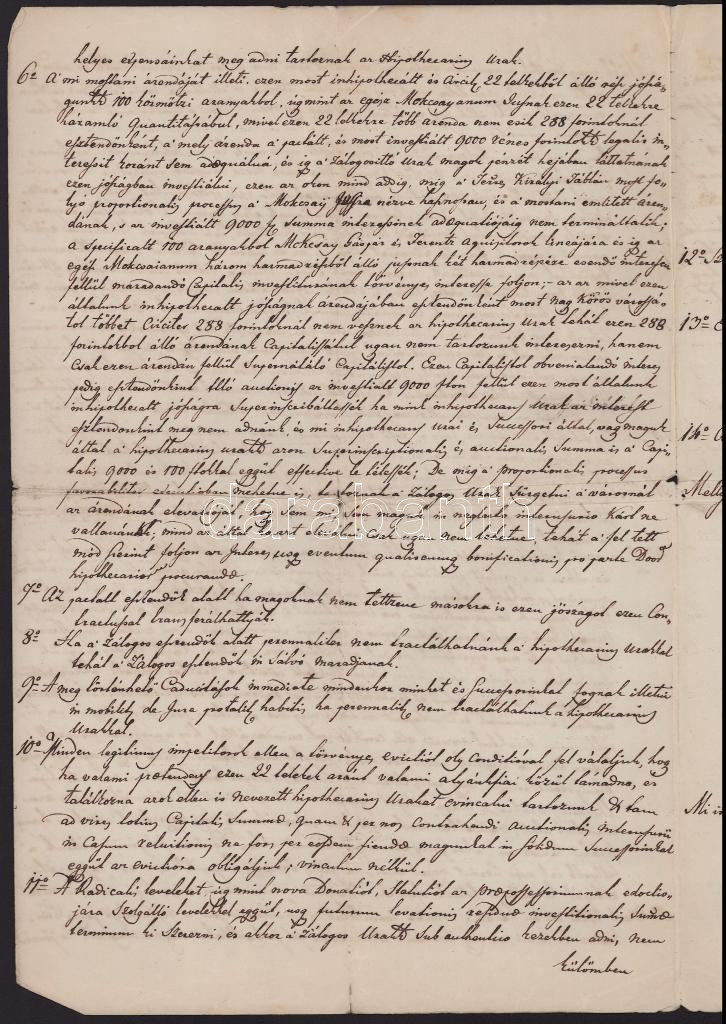 helyes expensáinkat meg adni tartoznak az Hypothecarius Urak.
6o A mi mostani árendáját illeti, ezen most inhipothecált és Circit. 22 telkekbűl álló rész jószá-
gunktól 100 körmötzi aranyakbol, úgymint az egész Mokcsayanum Jusnak ezen 22 telekre
háramló Quantitásábul, mivel ezen 22 telekre több árenda nem esik 288 forintoknál
esztendőnként, a mely árenda a pactált, és most investiált 9000 vénes forintok legalis in-
teressét koránt sem adaequálná, és ig a Zálogosittó Urak magok pénzét héjában láttatnának
ezen jószágban investiálni, ezen az okon mind addig, míg a Ttes Királyi Táblán most fo-
lyó proportionalis processus a Mokcsay Jussra nézve
dának, s az investiált 9000 f. Summa interessének adaequatiojáig nem termináltatik;
a specificált 100 aranyakbol Mokcsay Gáspár és Ferentz Aquisitorok Lineájára és ig az
egész Mokcsaianum három harmadrészbűl álló jussnak két harmadrészére esendő interessen
fellül maradandó Capitalis investiturának törvényes interesse foljon; - az az mivel ezen
általunk inhipothecált jószágnak árendájában esztendőnként most Nag Kőrös városssá-
tol többet Circiter 288 forintoknál nem vesznek az hipothecarius Urak tehát ezen 288
forintokbol álló árendának Capitalissátul ugan nem tartozunk interessezni, hanem
Csak ezen árendán fellül Supernatáló Capitálistol. Ezen Capitalistol obveniálandó interes
pedig esztendőnként álló auctionis az investiált 9000 fton fellül ezen most általunk
inhipothecált jószágra Superinscribáltassék ha mink inhipothecans Urak az interest
esztendőnként meg nem adnánk, és mi inhipothecans Urai és Successori által, vag magunk
által a hipothecarius uraktol azon Superinscriptionalis és auctionalis Summa is a Capi-
talis 9000 és 100 ftokkal eggütt effective le tétessék; De míg a proportionalis processus
is, tartoznak a Zálogos Urak Sürgetni a várossnál
az árendának elevatioját, hogy Sem mi, Sem magok is neglecto interusurio kárt ne
vallanánk, mind az által ha azt elevalni csak ugan nem lehetne tehát a fel tett
mód szerint foljon az Interes, usq eventum qualiscunq bonificationis pro parte Dood
hipothecarior procurandae.
7o Az pactált esztendők alatt ha magoknak nem tettzene másokra is ezen jószágot ezen Con-
tractussal transferálhattyák.
8o Ha a Zálogos esztendők alatt perennaliter nem tractálhatnánk a hipothecarius Urakkal
tehát a Zálogos esztendők in Salvo maradjanak.
9o A meg történhető Caducitások immediate mindenkor minket és Successorinkat fognak illetni
in mobilibus de Jura pertalis habitis, ha perennalit. nem tractálhatunk a hipothecarius
Urakkal.
10o Minden legitimus impetitorok ellen a törvényes evictiót oly Conditioval fel vállaljuk, hog
ha valami praetendens ezen 22 telekek aránt valami atyánkfiai közül támadna, és
találkozna azok ellen is nevezett hipothecarius Urakat evincalni tartozunk & tam
ad vires totius Capitalis Summae, quam & per nos Contrahendi auctionalis interusurii
in Casum reluitionis na fors per eosdem fiendae magunkat in Solidum Successorinkat
eggütt az evictióra obligáljuk, vinculum nélkül.
11o A Radicalis leveleket, úgymint nova Donatiot, Statutiot az praepossessoriumnak edoctio-
jára Szolgálló levelekkel eggüt, usq futurum levationis residuae investitionalis Summae
terminum ki Szerezni, és akkor a Zálogos Uraktol Sub authentico kezekben adni, nem
külömben
12o
13o
14o
Mely
Mi
darabanth